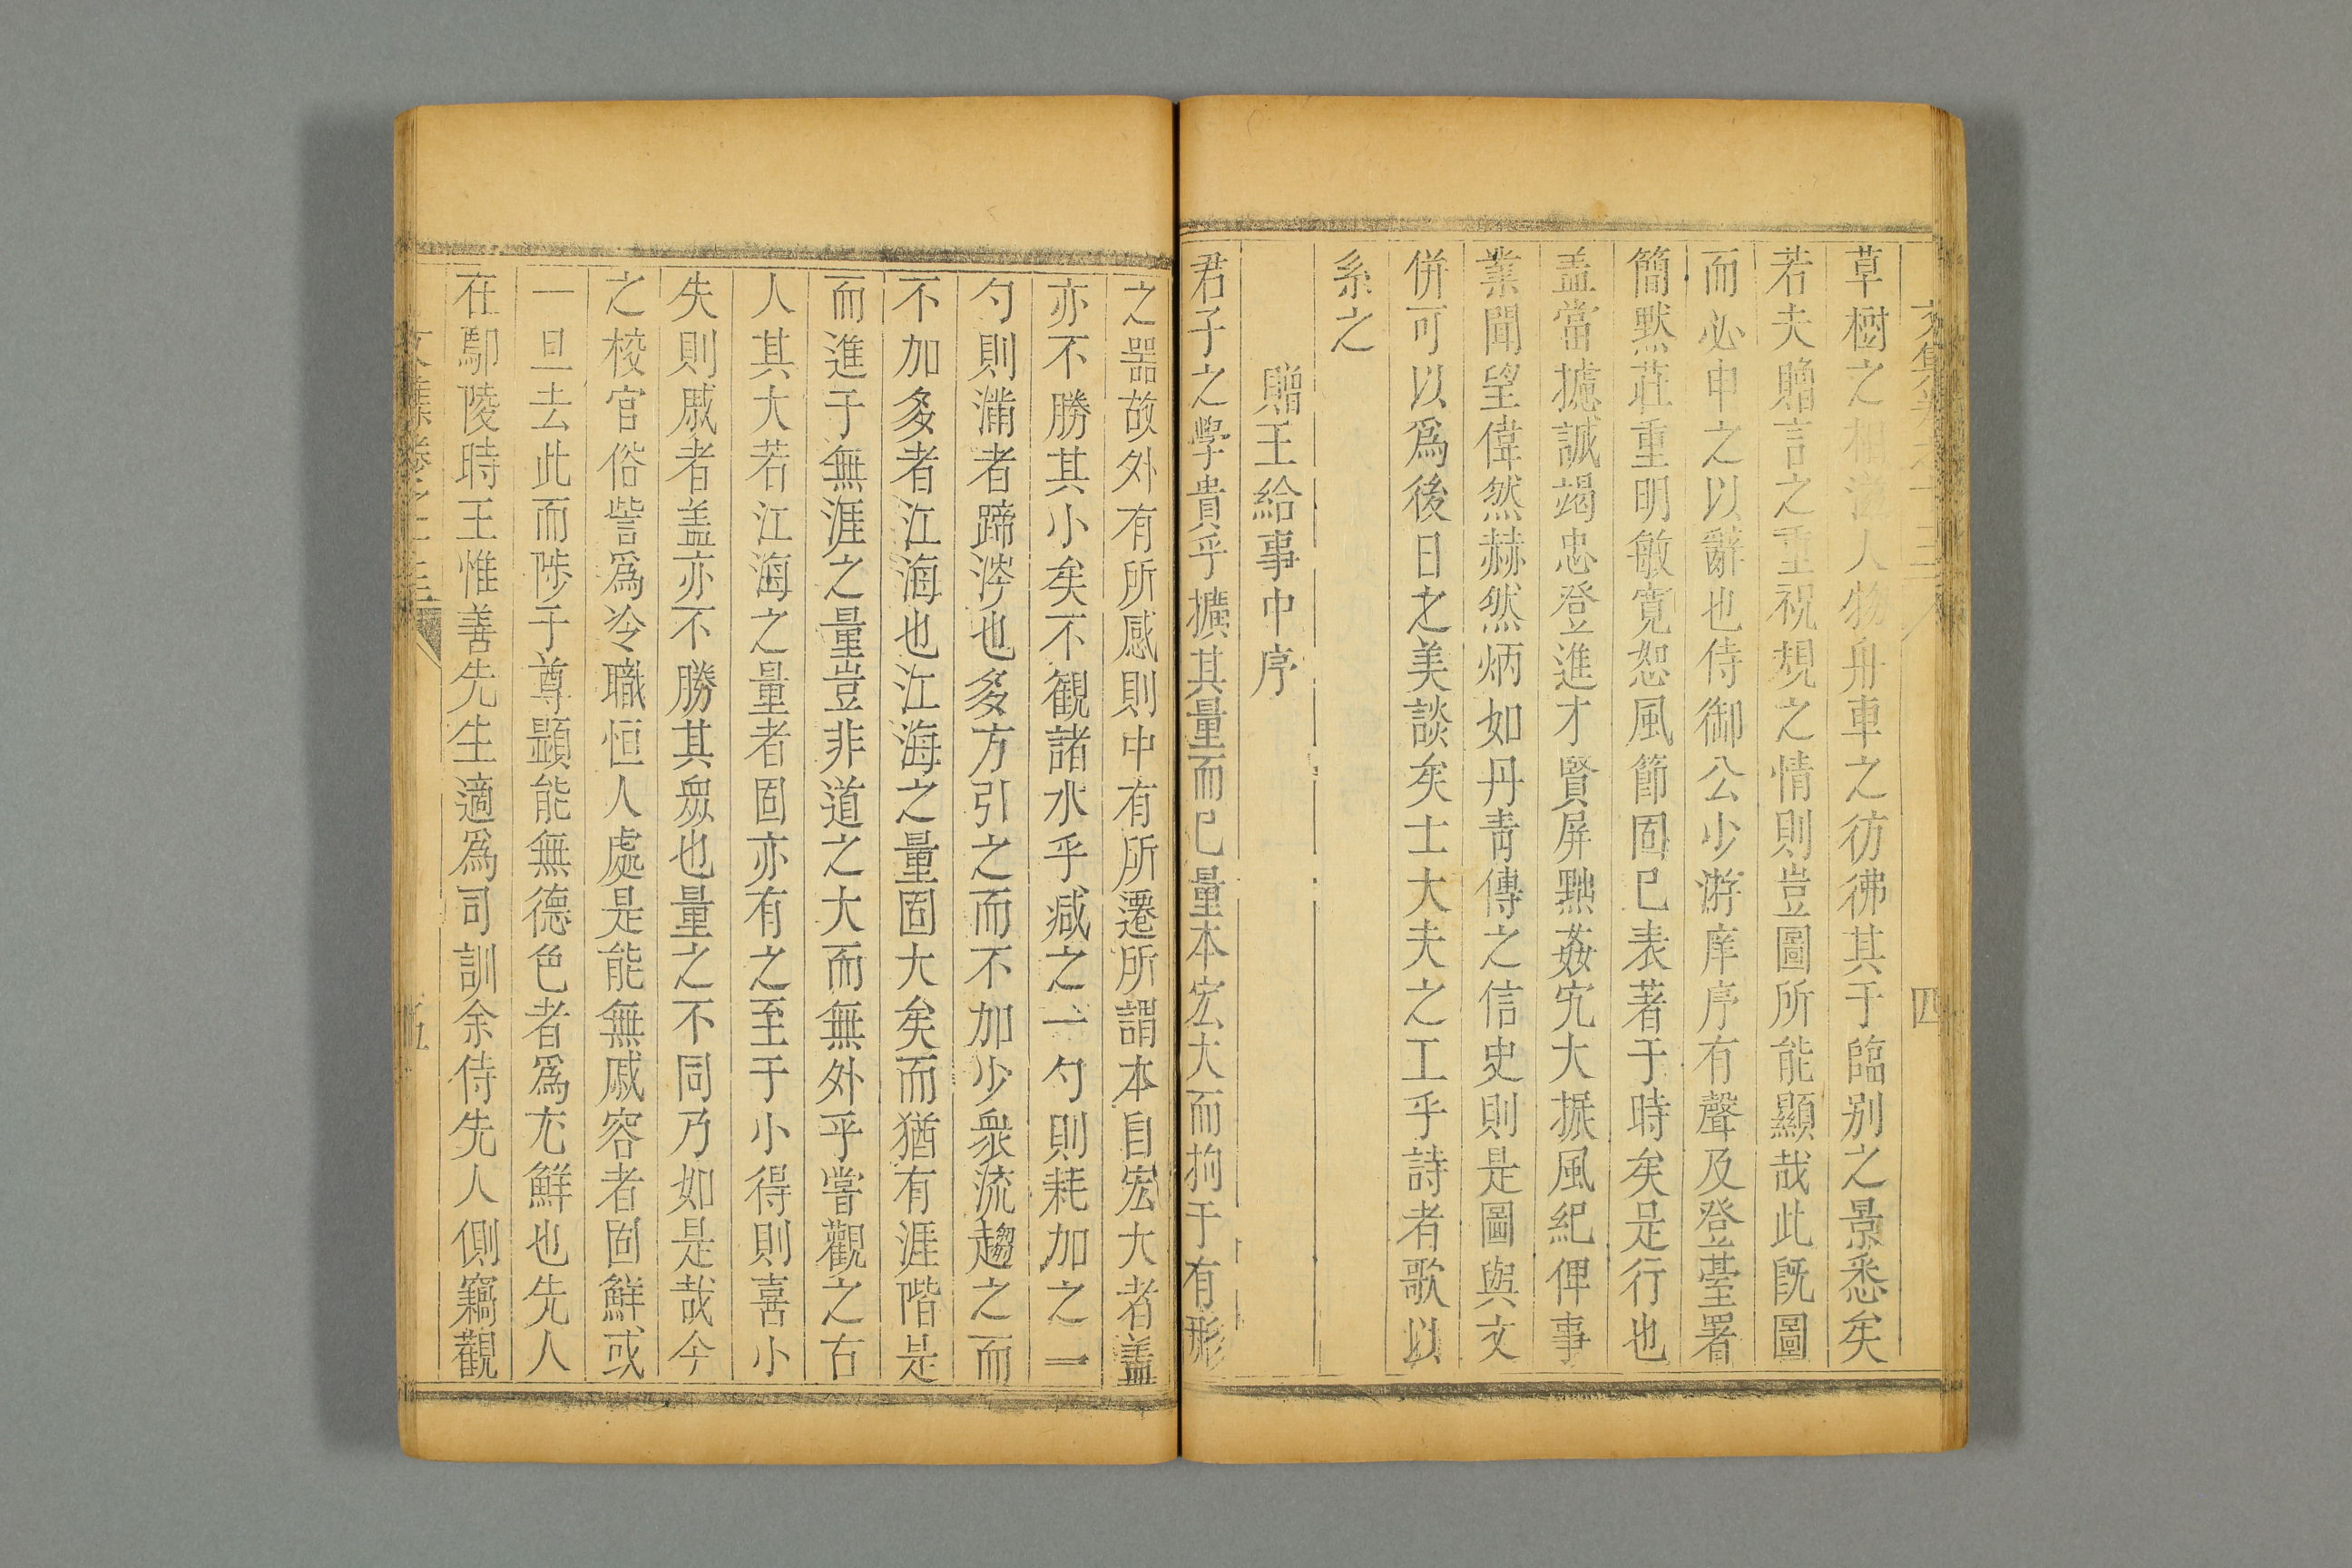 草樹之相法人物舟車之彷彿其于臨别之景悉矣
若夫贈言之重祝規之情則豈圖所能顯哉此旣圖
而必申之以辭也侍御公少游庠序有聲及登臺署
簡默莊重明敏寛恕風節固已表著于時矣是行也
盖當攄誠竭忠登進才賢屏黜姦宄大振風紀俾事
業聞望偉然赫然炳如丹青傳之信史則是圖與文
併可以爲後日之美談矣士大夫之工乎詩者歌以
系之
贈王給事中序
君子之學貴乎擴其量而已量本宏大而拘于有形
之器故外有所感則中有所遷所謂本自宏大者盖
亦不勝其小矣不觀諸水乎减之一勺則耗加之一
勺則滿者蹄涔也多方引之而不加少衆流趨之而
不加多者江海也江海之量固大矣而猶有涯階是
而進于無涯之量豈非道之大而無外乎嘗觀之古
人其大若江海之量者固亦有之至于小得則喜小
失則戚者盖亦不勝其衆也量之不同乃如是哉今
之校官俗訾爲冷職恒人處是能無戚容者固鮮或
一旦去此而陟于尊顯能無德色者爲尤鮮也先人
在鄢陵時王惟善先生適爲司訓余侍先人側竊觀
五